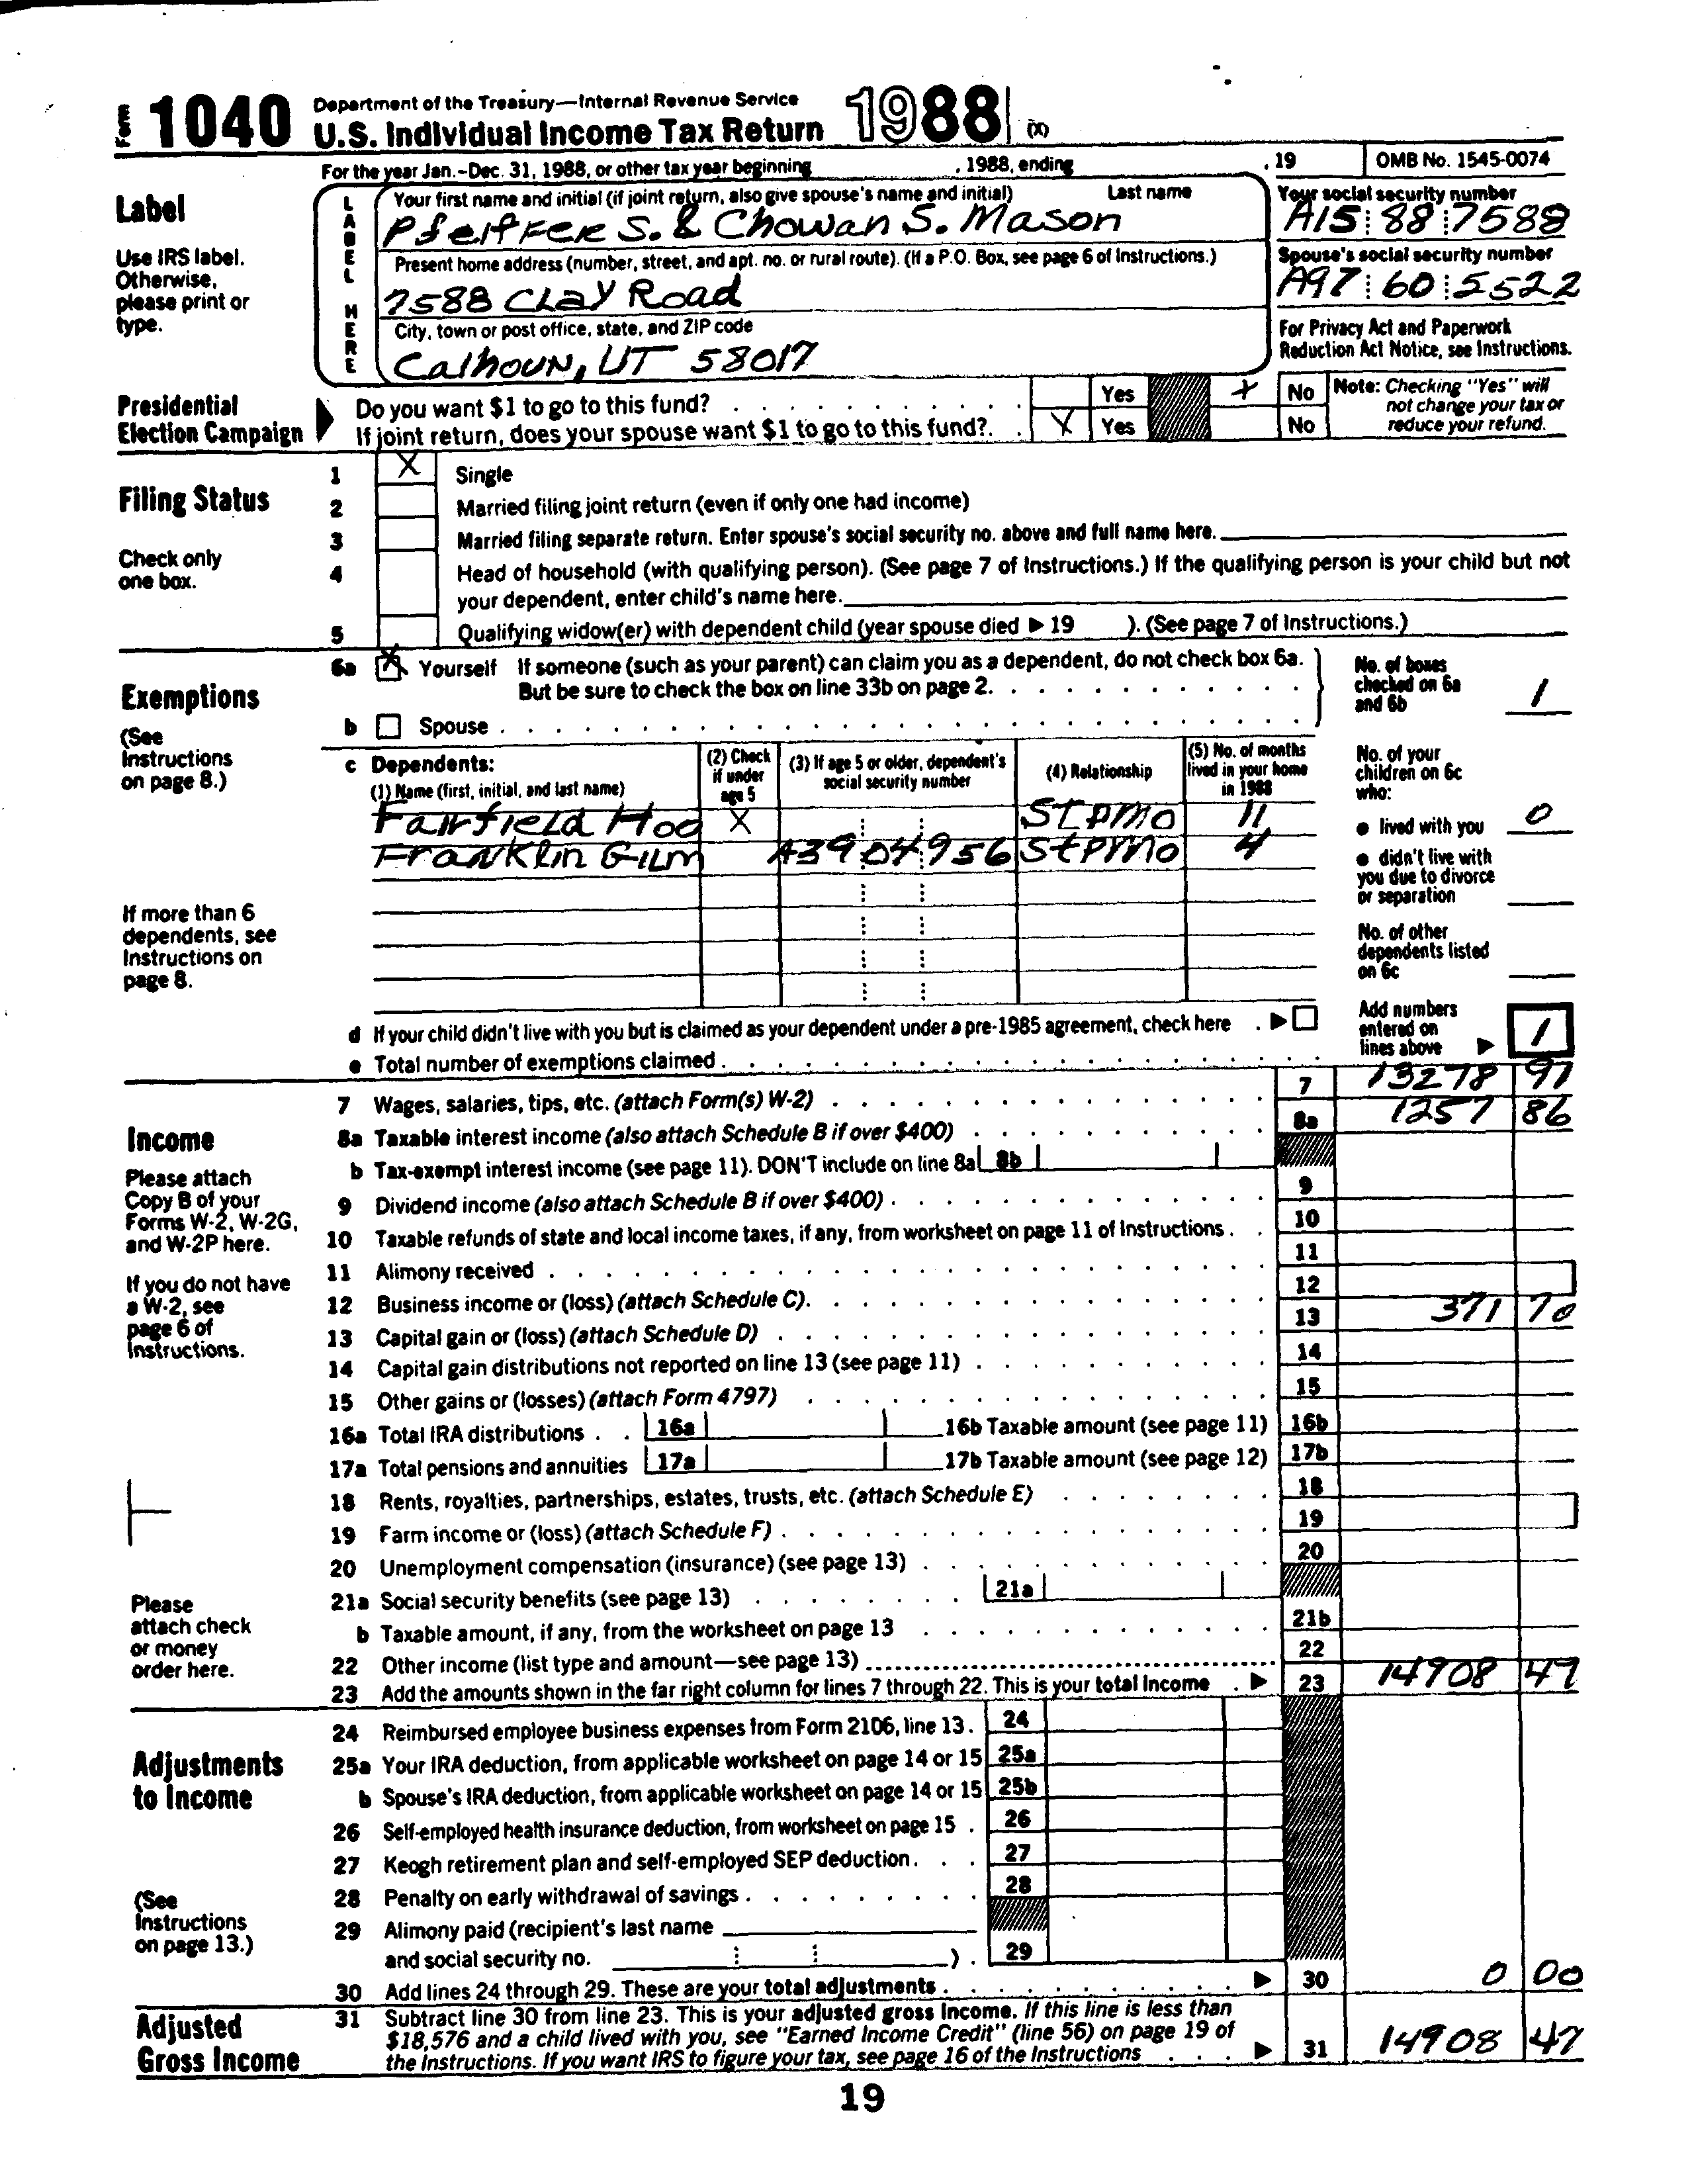 Form 1040 Department of the Treasury—Internal Revenue Service
U.S. Individual Income Tax Return 1988 (X)
For the year Jan.-Dec. 31, 1988, or other tax year beginning , 1988, ending , 19 OMB No. 1545-0074
Label
Use IRS label.
Otherwise,
please print or
type.
LABEL HERE
Your first name and initial (if joint return, also give spouse's name and initial) Last name
PfeifFER S. & Chowan S. Mason
Your social security number
A15 88 7588
Present home address (number, street, and apt. no. or rural route). (If a P.O. Box, see page 6 of Instructions.)
7588 Clay Road
Spouse's social security number
A97 60 5522
City, town or post office, state, and ZIP code
Calhoun, UT 58017
For Privacy Act and Paperwork
Reduction Act Notice, see Instructions.
Presidential
Election Campaign
Do you want $1 to go to this fund? Yes X No
If joint return, does your spouse want $1 to go to this fund?. X Yes No
Note: Checking "Yes" will
not change your tax or
reduce your refund.
Filing Status
Check only
one box.
1 X Single
2 Married filing joint return (even if only one had income)
3 Married filing separate return. Enter spouse's social security no. above and full name here.
4 Head of household (with qualifying person). (See page 7 of Instructions.) If the qualifying person is your child but not
your dependent, enter child's name here.
5 Qualifying widow(er) with dependent child (year spouse died ▶ 19 ). (See page 7 of Instructions.)
Exemptions
(See
Instructions
on page 8.)
6a X Yourself If someone (such as your parent) can claim you as a dependent, do not check box 6a.
But be sure to check the box on line 33b on page 2.
b Spouse
No. of boxes
checked on 6a
and 6b 1
c Dependents:
(1) Name (first, initial, and last name)
(2) Check
if under
age 5
(3) If age 5 or older, dependent's
social security number
(4) Relationship
(5) No. of months
lived in your home
in 1988
Fairfield Hoo X STPMO 11
Franklin Gilm A39 04 956 StPMO 4
No. of your
children on 6c
who:
● lived with you 0
● didn't live with
you due to divorce
or separation
No. of other
dependents listed
on 6c
If more than 6
dependents, see
Instructions on
page 8.
d If your child didn't live with you but is claimed as your dependent under a pre-1985 agreement, check here ▶
e Total number of exemptions claimed
Add numbers
entered on
lines above ▶ 1
Income
Please attach
Copy B of your
Forms W-2, W-2G,
and W-2P here.
If you do not have
a W-2, see
page 6 of
Instructions.
Please
attach check
or money
order here.
7 Wages, salaries, tips, etc. (attach Form(s) W-2) 7 13278 91
8a Taxable interest income (also attach Schedule B if over $400) 8a 1257 86
b Tax-exempt interest income (see page 11). DON'T include on line 8a 8b
9 Dividend income (also attach Schedule B if over $400) 9
10 Taxable refunds of state and local income taxes, if any, from worksheet on page 11 of Instructions 10
11 Alimony received 11
12 Business income or (loss) (attach Schedule C) 12
13 Capital gain or (loss) (attach Schedule D) 13 371 70
14 Capital gain distributions not reported on line 13 (see page 11) 14
15 Other gains or (losses) (attach Form 4797) 15
16a Total IRA distributions 16a 16b Taxable amount (see page 11) 16b
17a Total pensions and annuities 17a 17b Taxable amount (see page 12) 17b
18 Rents, royalties, partnerships, estates, trusts, etc. (attach Schedule E) 18
19 Farm income or (loss) (attach Schedule F) 19
20 Unemployment compensation (insurance) (see page 13) 20
21a Social security benefits (see page 13) 21a
b Taxable amount, if any, from the worksheet on page 13 21b
22 Other income (list type and amount—see page 13) 22
23 Add the amounts shown in the far right column for lines 7 through 22. This is your total income ▶ 23 14908 47
Adjustments
to Income
(See
Instructions
on page 13.)
24 Reimbursed employee business expenses from Form 2106, line 13. 24
25a Your IRA deduction, from applicable worksheet on page 14 or 15 25a
b Spouse's IRA deduction, from applicable worksheet on page 14 or 15 25b
26 Self-employed health insurance deduction, from worksheet on page 15 26
27 Keogh retirement plan and self-employed SEP deduction 27
28 Penalty on early withdrawal of savings 28
29 Alimony paid (recipient's last name
and social security no. ) 29
30 Add lines 24 through 29. These are your total adjustments ▶ 30 0 00
Adjusted
Gross Income
31 Subtract line 30 from line 23. This is your adjusted gross income. If this line is less than
$18,576 and a child lived with you, see "Earned Income Credit" (line 56) on page 19 of
the Instructions. If you want IRS to figure your tax, see page 16 of the Instructions ▶ 31 14908 47
19